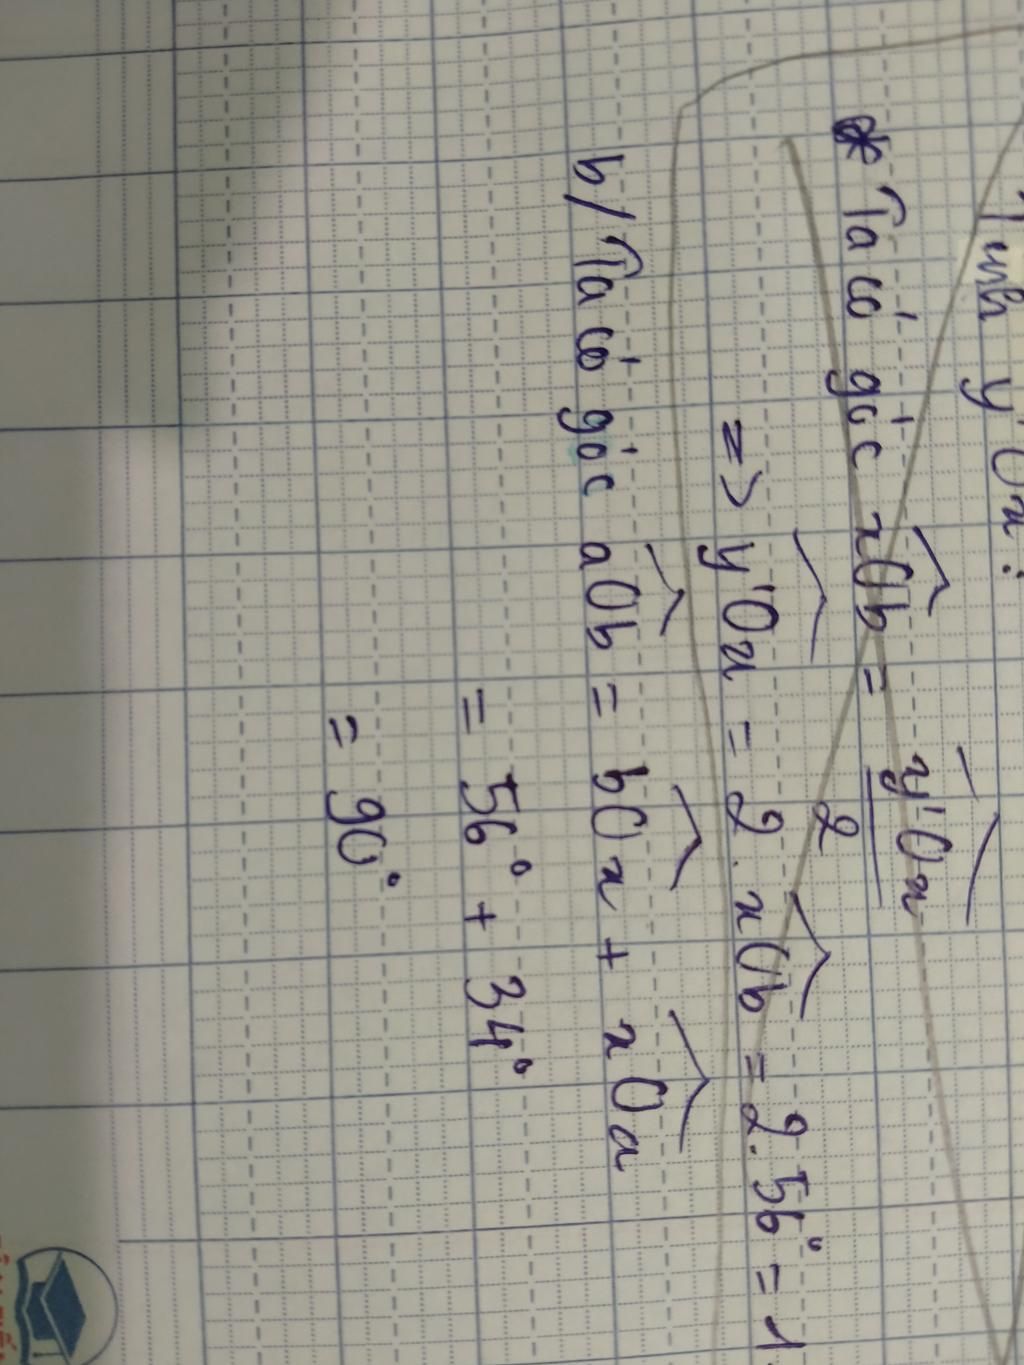 Tính y'Ox :
* Ta có góc xOb = y'Ox / 2
=> y'Ox = 2 . xOb = 2 . 56° = 1
b/ Ta có góc aOb = bOx + xOa
= 56° + 34°
= 90°